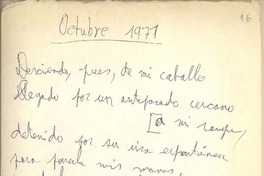 16
Octubre 1971
Desciendo, pues, de mi caballo
llegado por un antepasado cercano
[a mi sangre,
detenido por su ira espontánea
para mis manos,